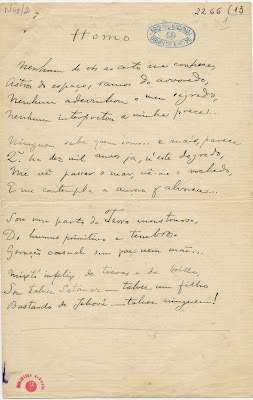 N48/2
2266 (13
1
Homo
Nenhum de vós ao certo me conhece,
Astros do espaço, ramos do arvoredo,
Nenhum adivinhou o meu segredo,
Nenhum interpretou a minha prece...
Ninguem sabe quem sou... e mais, parece
Q. ha dez mil annos já, n'este degredo,
Me vê passar o mar, vê-me o rochedo,
E me contempla a aurora q. alvorece...
Sou um parto da Terra monstruoso,
Do humus primitivo e tenebroso
Geração casual sem pae nem mãe...
Mixto infeliz de trevas e de brilho,
Sou talvez Satanaz — talvez um filho
Bastardo de Jehová — talvez ninguem!